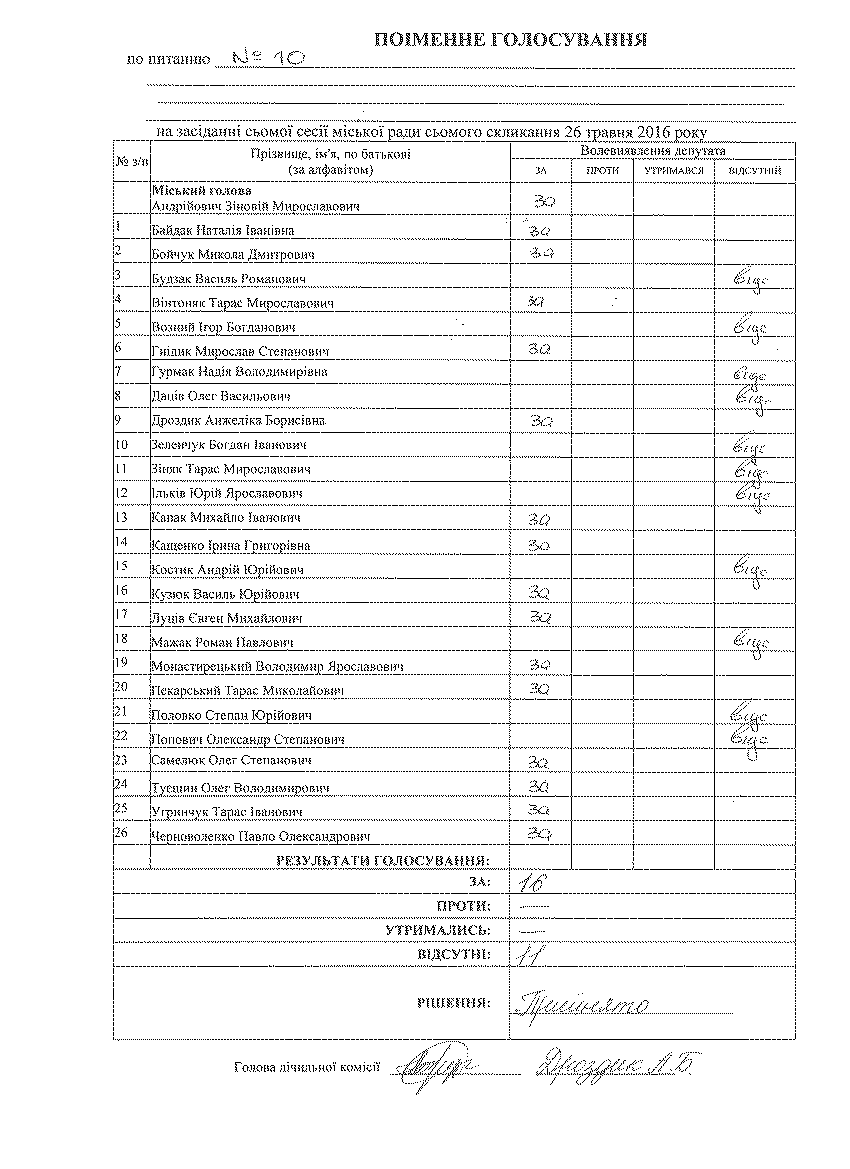 ПОІМЕННЕ ГОЛОСУВАННЯ
по питанню № 10
на засіданні сьомої сесії міської ради сьомого скликання 26 травня 2016 року
№ з/п Прізвище, ім'я, по батькові (за алфавітом) Волевиявлення депутата
ЗА ПРОТИ УТРИМАВСЯ ВІДСУТНІЙ
Міський голова
Андрійович Зіновій Мирославович За
1 Байдак Наталія Іванівна За
2 Бойчук Микола Дмитрович За
3 Будзак Василь Романович відс
4 Вінтоняк Тарас Мирославович За
5 Возний Ігор Богданович відс
6 Гнідик Мирослав Степанович За
7 Гурмак Надія Володимирівна відс
8 Даців Олег Васильович відс
9 Дроздик Анжеліка Борисівна За
10 Зеленчук Богдан Іванович відс
11 Зіняк Тарас Мирославович відс
12 Ільків Юрій Ярославович відс
13 Капак Михайло Іванович За
14 Кащенко Ірина Григорівна За
15 Костик Андрій Юрійович відс
16 Кузюк Василь Юрійович За
17 Луців Євген Михайлович За
18 Мажак Роман Павлович відс
19 Монастирецький Володимир Ярославович За
20 Пекарський Тарас Миколайович За
21 Половко Степан Юрійович відс
22 Попович Олександр Степанович відс
23 Самелюк Олег Степанович За
24 Тусшин Олег Володимирович За
25 Угринчук Тарас Іванович За
26 Черноволенко Павло Олександрович За
РЕЗУЛЬТАТИ ГОЛОСУВАННЯ:
ЗА: 16
ПРОТИ: —
УТРИМАЛИСЬ: —
ВІДСУТНІ: 11
РІШЕННЯ: Прийнято
Голова лічильної комісії Дроздик А.Б.